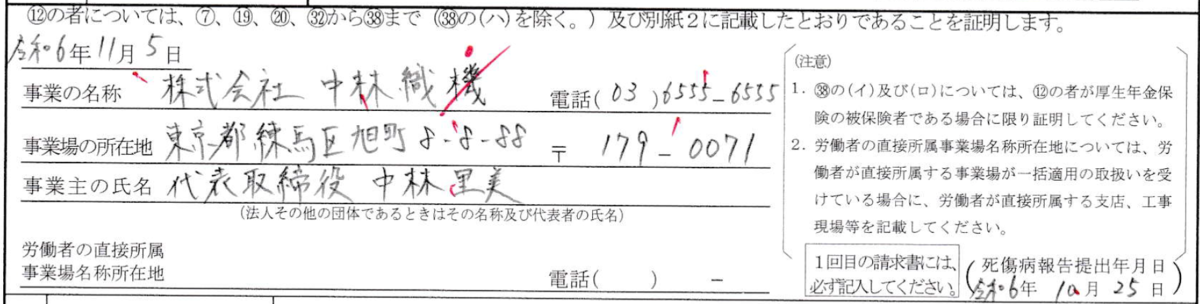 ⑫の者については、⑦、⑲、⑳、㉜から㊳まで（㊳の(ハ)を除く。）及び別紙２に記載したとおりであることを証明します。
令和6年11月5日
事業の名称 株式会社 中林織機 電話( 03 )6555-6555
事業場の所在地 東京都練馬区旭町8-8-88 〒 179-0071
事業主の氏名 代表取締役 中林里美
（法人その他の団体であるときはその名称及び代表者の氏名）
労働者の直接所属
事業場名称所在地 電話( ) －
（注意）
１．㊳の(イ)及び(ロ)については、⑫の者が厚生年金保
険の被保険者である場合に限り証明してください。
２．労働者の直接所属事業場名称所在地については、労
働者が直接所属する事業場が一括適用の取扱いを受
けている場合に、労働者が直接所属する支店、工事
現場等を記載してください。
１回目の請求書には、
必ず記入してください。
死傷病報告提出年月日
令和6年 10月 25日